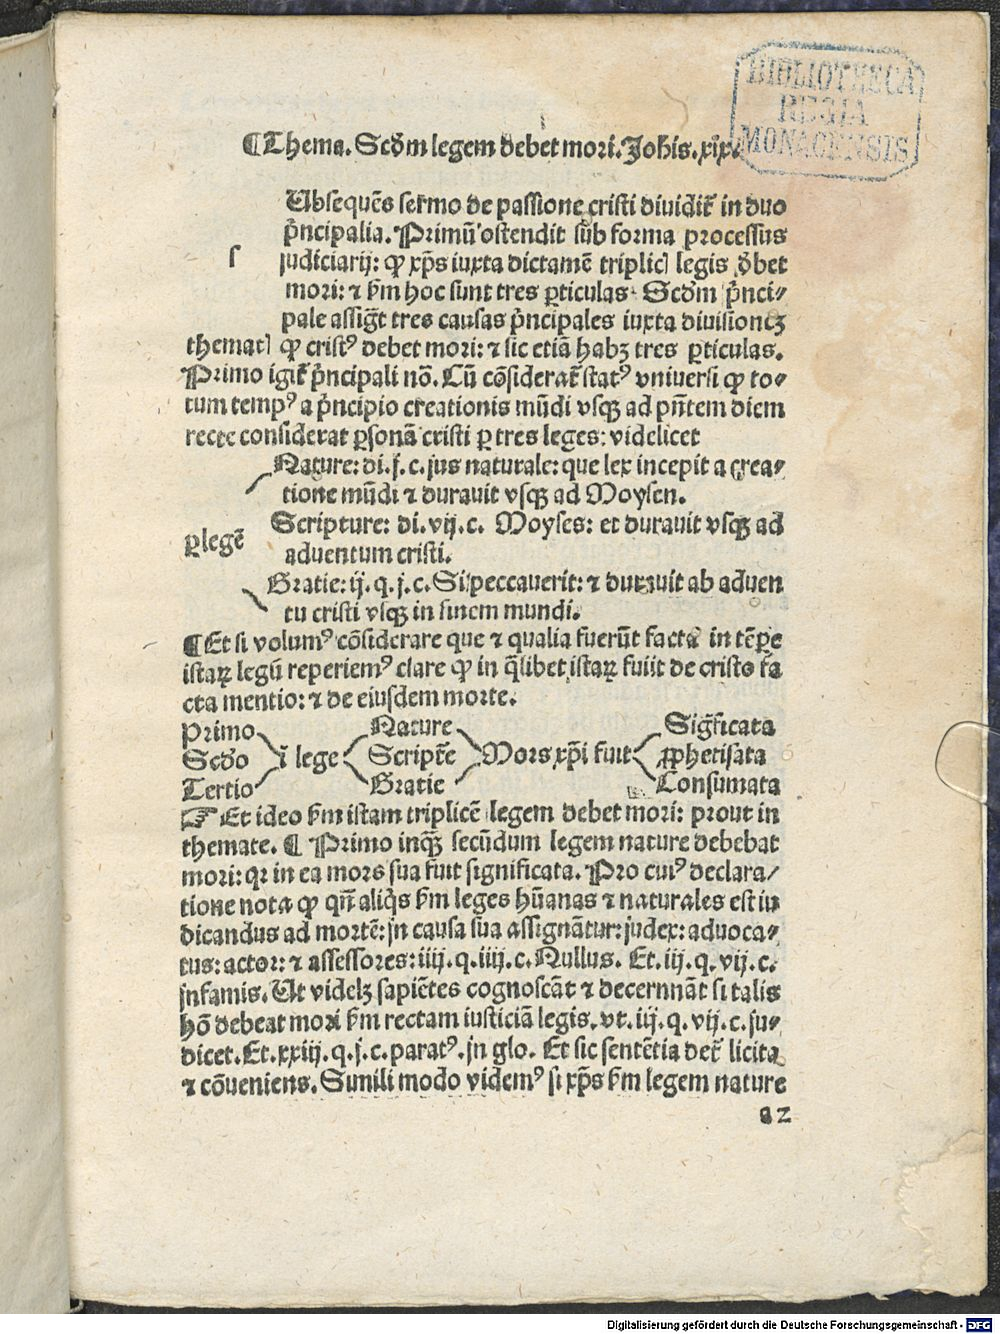 BIBLIOTHECA
REGIA
MONACENSIS
¶Thema. Scd̃m legem debet mori. Joh̃is. xix.
Ubsequẽs sermo de passione cristi diuidit᷑ in duo
p̃ncipalia. Primũ ostendit sub forma processus
ſ
judiciarij: ꝙ xp̃s iuxta dictamẽ triplicꝭ legis d̃bet
mori: ⁊ ẜm hoc sunt tres ꝑticulas. Scd̃m p̃nci⸗
pale assig̃t tres causas p̃ncipales iuxta diuisionẽ
thematꝭ ꝙ cristꝰ debet mori: ⁊ sic etiã habꝫ tres ꝑticulas.
Primo igit᷑ p̃ncipali nõ. Cũ cõsiderat᷑ statꝰ vniuersi ꝙ to⸗
tum tempꝰ a p̃ncipio creationis mũdi vsqꝫ ad pñtem diem
recte considerat ꝑsonã cristi ꝑ tres leges: videlicet
Nature: di. j. c. jus naturale: que lex incepit a crea⸗
tione mũdi ⁊ durauit vsqꝫ ad Moysen.
Scripture: di. vij. c. Moyses: et durauit vsqꝫ ad
ꝑ legẽ
aduentum cristi.
Gratie: ij. q. j. c. Si peccauerit: ⁊ durauit ab aduen
tu cristi vsqꝫ in finem mundi.
¶Et si volumꝰ cõsiderare que ⁊ qualia fuerũt facta in tẽpe
istaꝝ legũ reperiemꝰ clare ꝙ in q̃libet istaꝝ fuiit de cristo fa
cta mentio: ⁊ de eiusdem morte.
Primo Nature Sig̃ficata
Scd̃o ĩ lege Scriptẽ Mors xp̃i fuit ꝓphetisata
Tertio Gratie Consumata
☞ Et ideo ẜm istam triplicẽ legem debet mori: prout in
themate. ¶ Primo inqꝫ secũdum legem nature debebat
mori: qꝛ in ea mors sua fuit significata. Pro cuiꝰ declara⸗
tione nota ꝙ qñ aliq̃s ẜm leges hũanas ⁊ naturales est iu
dicandus ad mortẽ: jn causa sua assignãtur: judex: aduoca⸗
tus: actor: ⁊ assessores: iiij. q. iiij. c. Nullus. Et. iij. q. vij. c.
jnfamis. Ut videlꝫ sapiẽtes cognoscãt ⁊ decernnãt si talis
hõ debeat mori ẜm rectam iusticiã legis. vt. iij. q. vij. c. ju⸗
dicet. Et. xxiij. q. j. c. paratꝰ. jn glo. Et sic sentẽtia det᷑ licita
⁊ cõueniens. Simili modo videmꝰ si xp̃s ẜm legem nature
a2
Digitalisierung gefördert durch die Deutsche Forschungsgemeinschaft - DFG